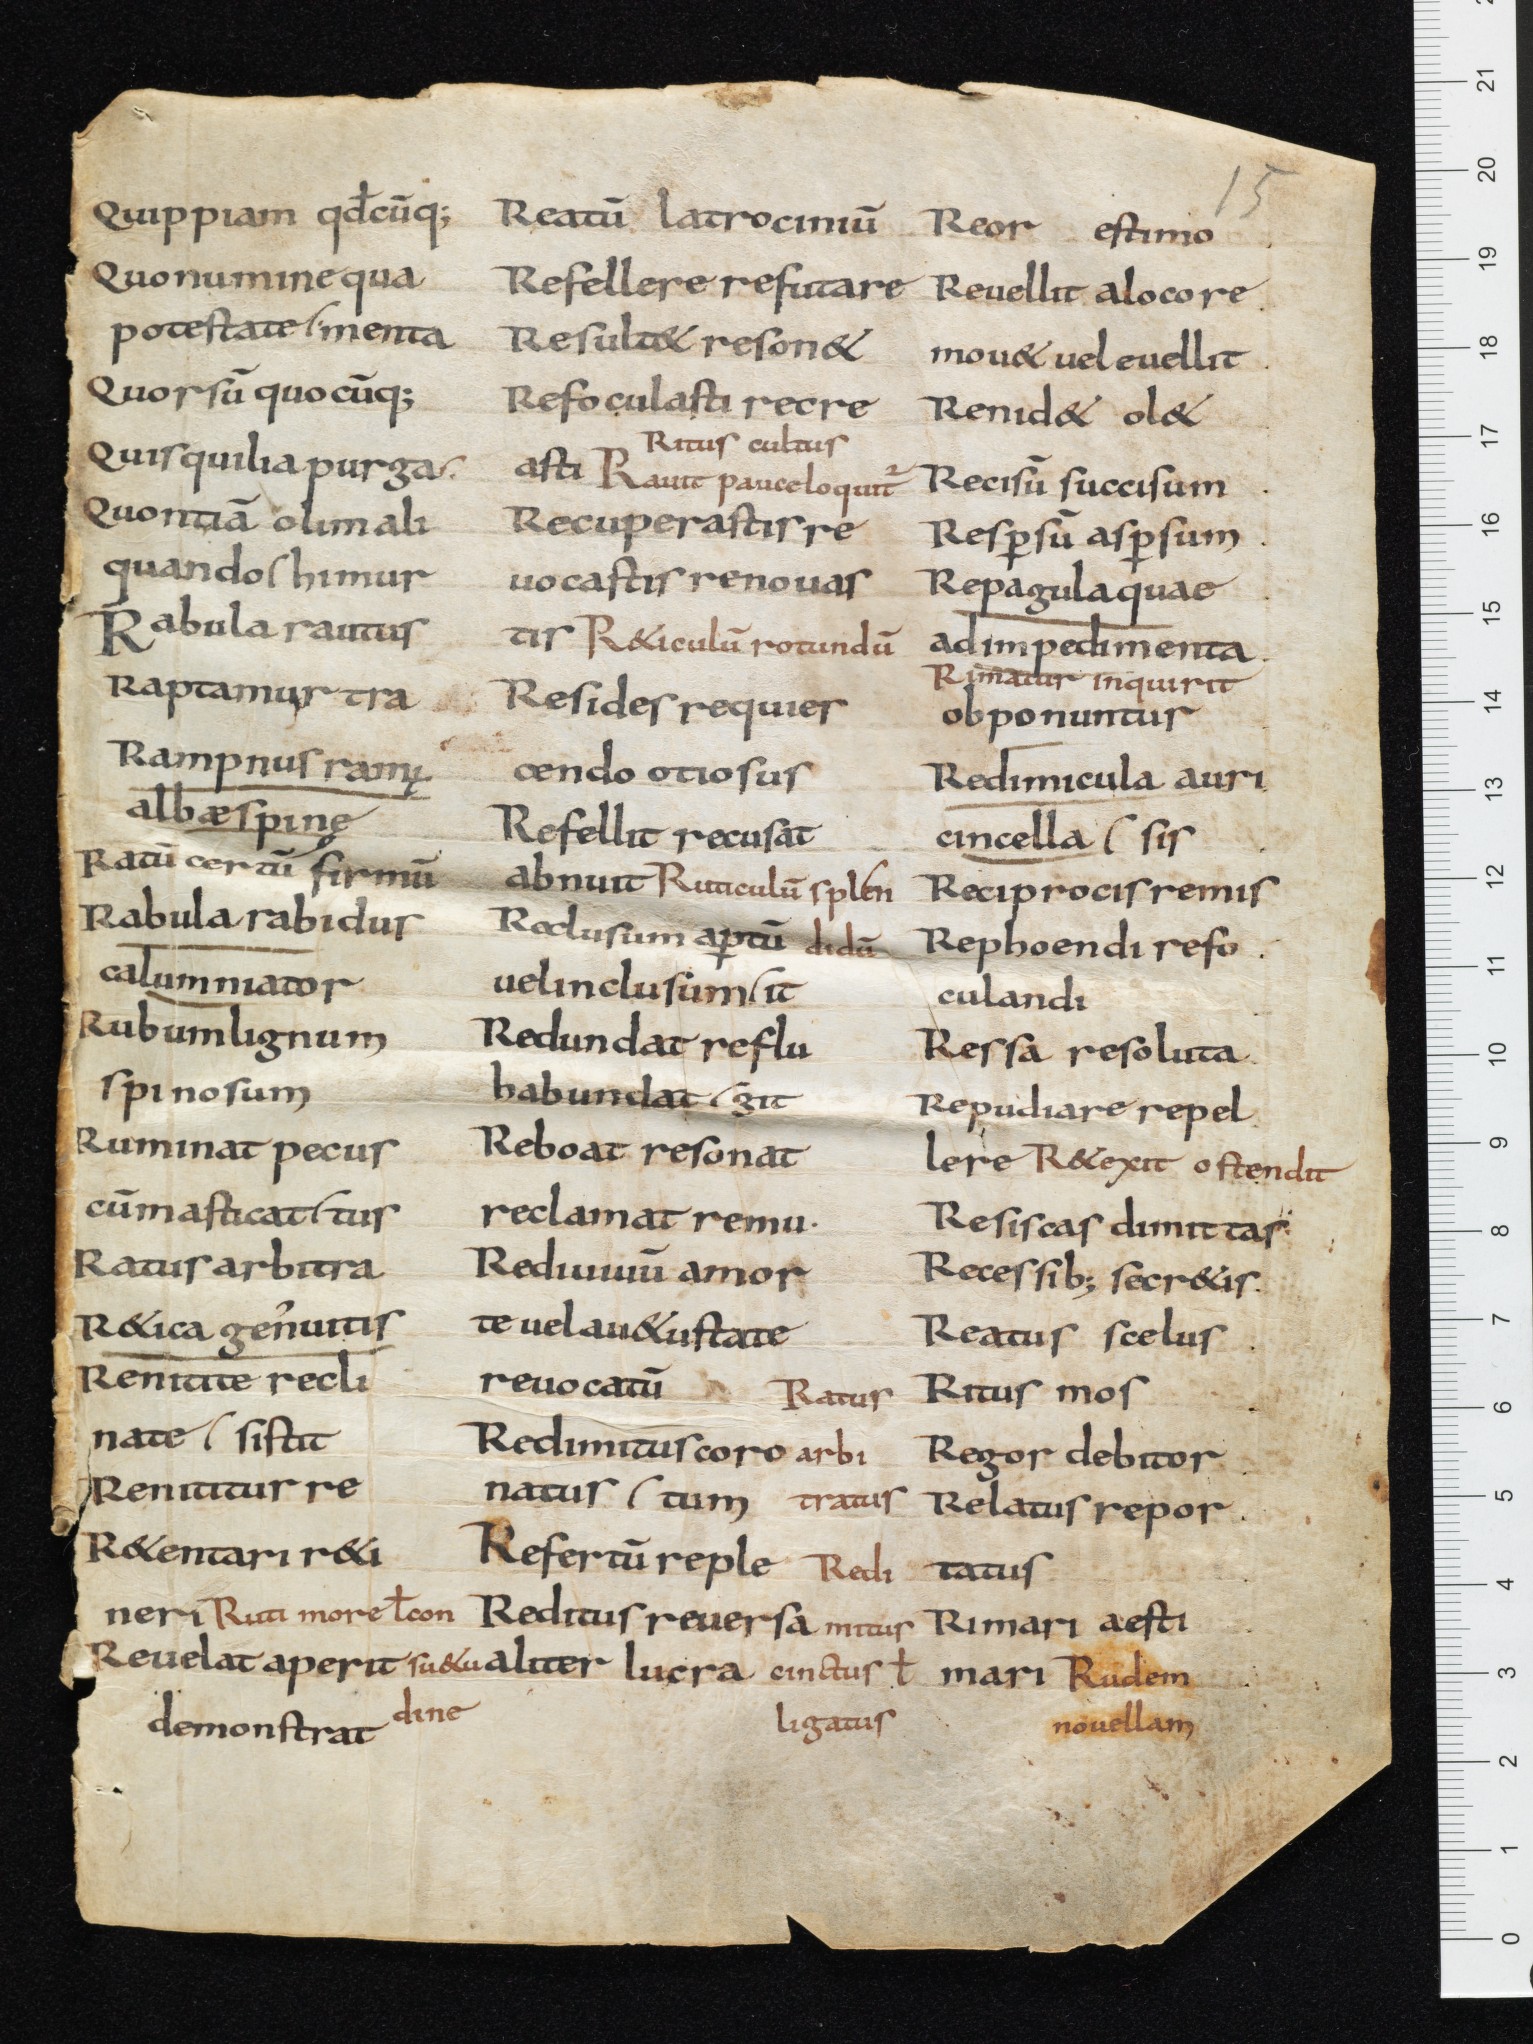 15
Quippiam qđcūq;
Quo numine qua
potestate (menta
Quorsū quocūq;
Quisquilia purga
Quontiā olim ali
quando (himur
Rabula rautus
Raptamur tra
Rampnus ramę
albæ spinę
Ratū certū firmū
Rabula rabidus
calumniator
Rubum lignum
spinosum
Ruminat pecus
cū masticat (tus
Ratus arbitra
R&ica genuitis
Renitite recli
nate (sistit
Renititur re
R&entari r&i
neri Riti more ł con
Reuelat aperit su&u
demonstrat dine
Reatū latrociniū
Refellere refutare
Result& reson&
Refoculasti recre
Ritus cultus
asti Rauit pauceloquit᷑
Recuperastis re
uocastis renouas
tis R&iculū rotundū
Resides requies
cendo otiosus
Refellit recusat
abnuit Ruticulū splen
Reclusum aꝑtū didū
uel inclusum (it
Redundat reflu
habundat (git
Reboat resonat
reclamat remu.
Rediuiuū a mor
te uel a u&ustate
reuocatū Ratus
Redimitus coro arbi
natus (tum tratus
Refertū reple Redi
Reditus reuersa mitus
aliter lucra cinctus ł
ligatus
Reor estimo
Reuellit a loco re
mou& uel euellit
Renid& ol&
Recisū succisum
Resꝑsū asꝑsum
Repagula quae
ad impedimenta
Rimatur inquirit
obponuntur
Redimicula auri
cincella (sis
Reciprocis remis
Rephoendi refo
culandi
Ressa resoluta
Repudiare repel
lere R&exit ostendit
Resiscas dimittas
Recessib; secr&is.
Reatus scelus
Ritus mos
Regor debitor
Relatus repor
tatus
Rimari aesti
mari Rudem
nouellam